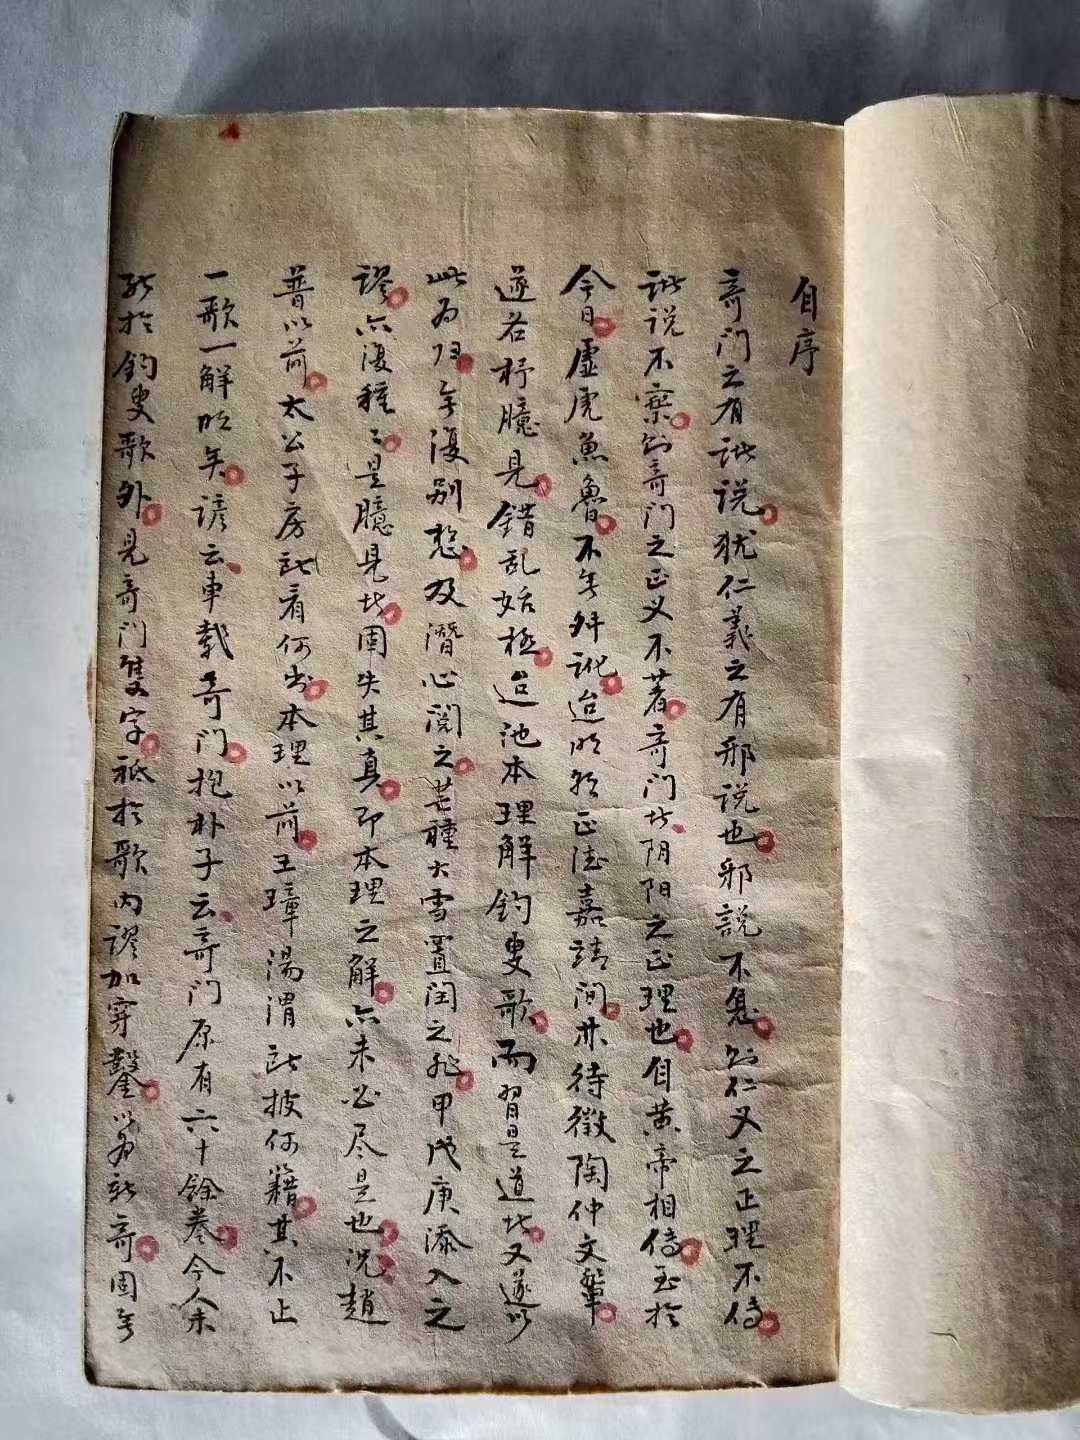 自序
奇门之有訛说犹仁義之有邪说也邪說不息则仁义之正理不傳
訛说不察则奇门之正义不著奇门者阴阳之正理也自黄帝相傳至於
今日虛虎魚魯不無舛訛迨明朝正德嘉靖间林待徵陶仲文輩
遂各杼臆見錯乱始極迨池本理解釣叟歌而習是道者又遂以
此为归無復别愁及潛心閱之芒種大雪置闰之非甲戊庚添入之
謬亦復種〻是臆見者固失其真即本理之解亦未必尽是也况趙
普以前太公子房所看何书本理以前王璋湯渭所披何籍其不止
一歌一解明矣諺云車载奇门抱朴子云奇门原有六十餘卷今人未
能於釣叟歌外見奇门隻字祗於歌内謬加穿鑿以为新奇固無